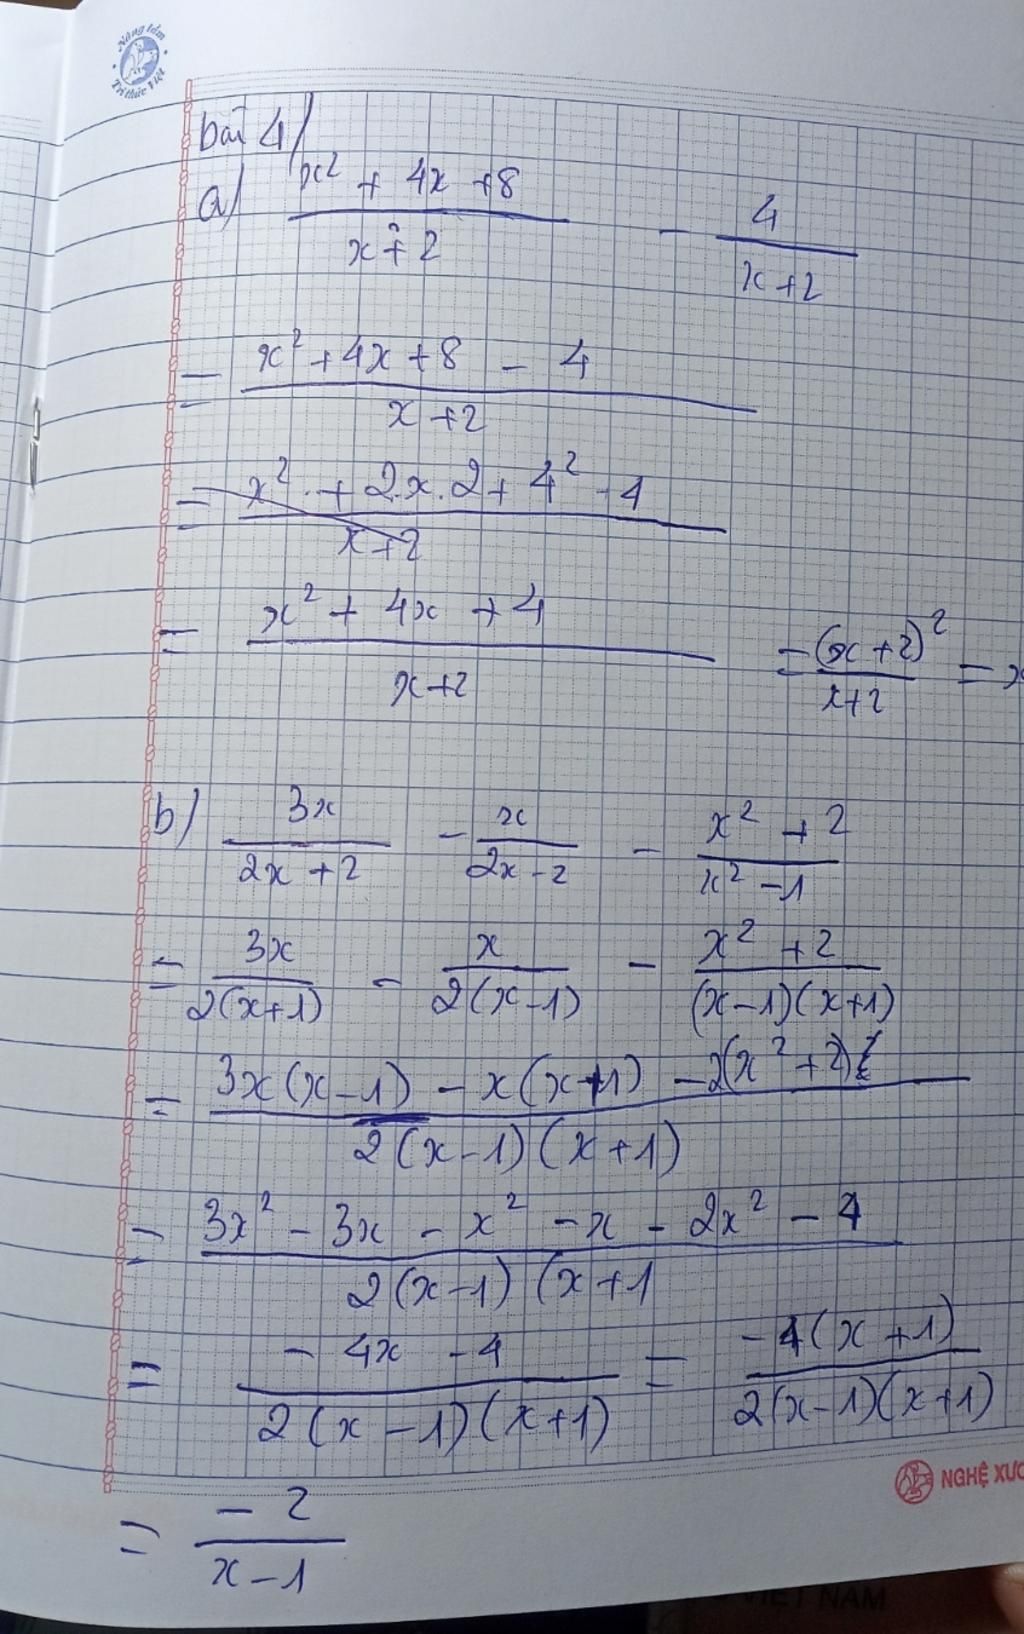 Nâng tầm
Trí thức Việt
bài 4/
a) (x² + 4x + 8)/(x + 2) - 4/(x + 2)
= (x² + 4x + 8 - 4)/(x + 2)
= (x² + 2x.2 + 4² - 4)/(x + 2)
= (x² + 4x + 4)/(x + 2) = (x + 2)²/(x + 2) = x
b) 3x/(2x + 2) - x/(2x - 2) - (x² + 2)/(x² - 1)
= 3x/2(x+1) - x/2(x-1) - (x² + 2)/(x-1)(x+1)
= (3x(x-1) - x(x+1) - 2(x² + 2))/2(x-1)(x+1)
= (3x² - 3x - x² - x - 2x² - 4)/2(x-1)(x+1
= (- 4x - 4)/2(x-1)(x+1) = -4(x+1)/2(x-1)(x+1)
NGHỆ XƯ
= -2/(x-1)
VIET NAM